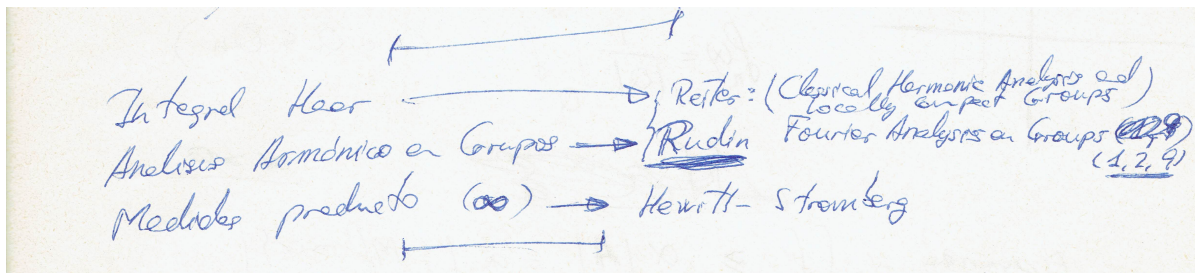 Integral Haar → Reiter: (Classical Harmonic Analysis and Locally Compact Groups)
Analisis Armónico en Grupos → Rudin Fourier Analysis on Groups
(1,2,9)
Medidas producto (∞) → Hewitt-Stromberg